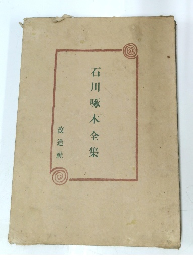 石川啄木全集
改造社